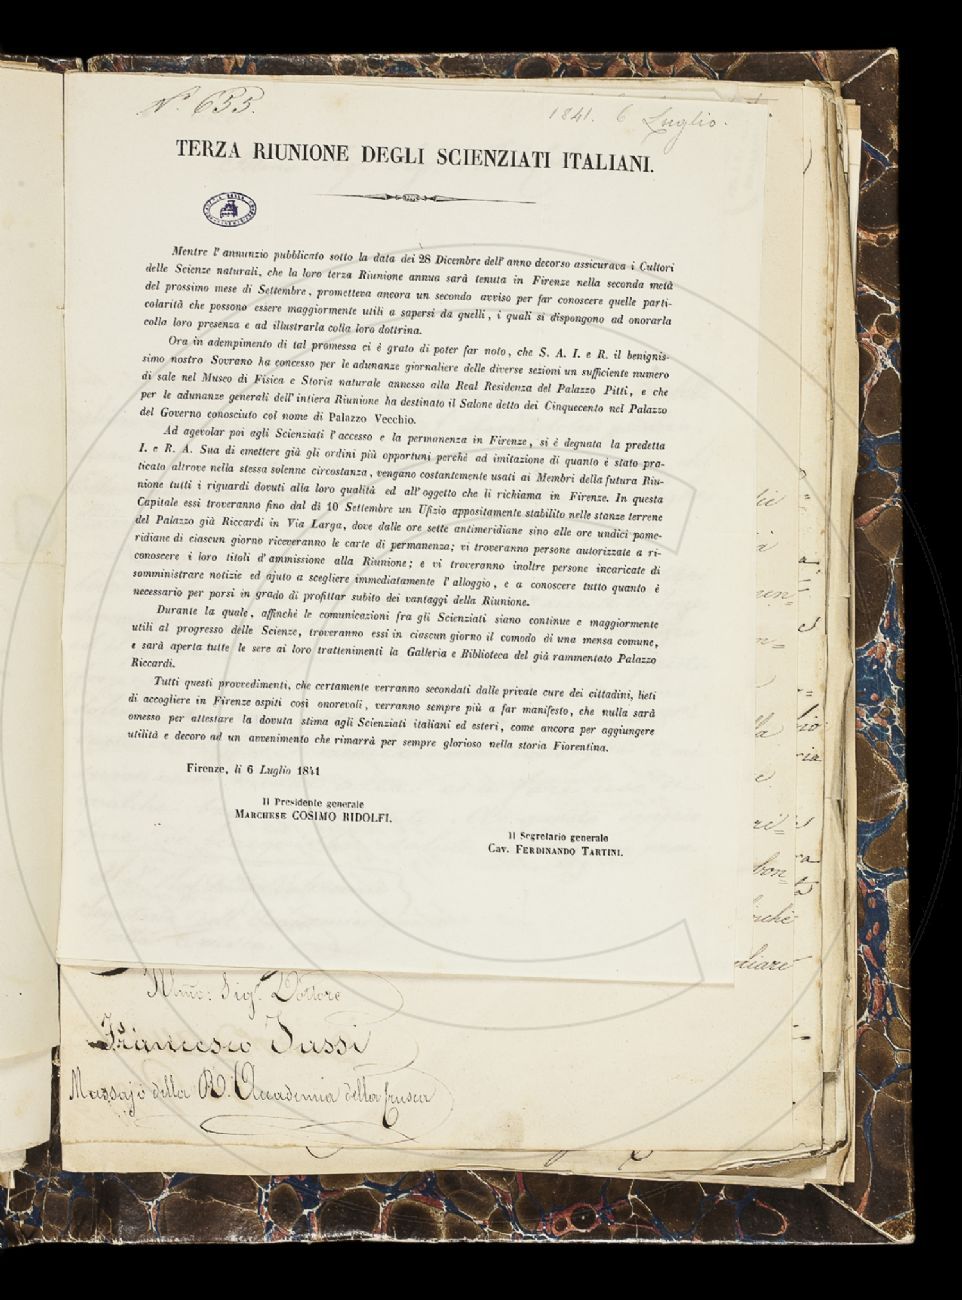 N.° 655.
1841. 6 Luglio.
TERZA RIUNIONE DEGLI SCIENZIATI ITALIANI.
Mentre l'annunzio pubblicato sotto la data dei 28 Dicembre dell'anno decorso assicurava i Cultori
delle Scienze naturali, che la loro terza Riunione annua sarà tenuta in Firenze nella seconda metà
del prossimo mese di Settembre, prometteva ancora un secondo avviso per far conoscere quelle parti-
colarità che possono essere maggiormente utili a sapersi da quelli, i quali si dispongono ad onorarla
colla loro presenza e ad illustrarla colla loro dottrina.
Ora in adempimento di tal promessa ci è grato di poter far noto, che S. A. I. e R. il benignis-
simo nostro Sovrano ha concesso per le adunanze giornaliere delle diverse sezioni un sufficiente numero
di sale nel Museo di Fisica e Storia naturale annesso alla Real Residenza del Palazzo Pitti, e che
per le adunanze generali dell'intiera Riunione ha destinato il Salone detto dei Cinquecento nel Palazzo
del Governo conosciuto col nome di Palazzo Vecchio.
Ad agevolar poi agli Scienziati l'accesso e la permanenza in Firenze, si è degnata la predetta
I. e R. A. Sua di emettere già gli ordini più opportuni perchè ad imitazione di quanto è stato pra-
ticato altrove nella stessa solenne circostanza, vengano costantemente usati ai Membri della futura Riu-
nione tutti i riguardi dovuti alla loro qualità ed all'oggetto che li richiama in Firenze. In questa
Capitale essi troveranno fino dal dì 10 Settembre un Ufizio appositamente stabilito nelle stanze terrene
del Palazzo già Riccardi in Via Larga, dove dalle ore sette antimeridiane sino alle ore undici pome-
ridiane di ciascun giorno riceveranno le carte di permanenza; vi troveranno persone autorizzate a ri-
conoscere i loro titoli d'ammissione alla Riunione; e vi troveranno inoltre persone incaricate di
somministrare notizie ed ajuto a scegliere immediatamente l'alloggio, e a conoscere tutto quanto è
necessario per porsi in grado di profittar subito dei vantaggi della Riunione.
Durante la quale, affinchè le comunicazioni fra gli Scienziati siano continue e maggiormente
utili al progresso delle Scienze, troveranno essi in ciascun giorno il comodo di una mensa comune,
e sarà aperta tutte le sere ai loro trattenimenti la Galleria e Biblioteca del già rammentato Palazzo
Riccardi.
Tutti questi provvedimenti, che certamente verranno secondati dalle private cure dei cittadini, lieti
di accogliere in Firenze ospiti così onorevoli, verranno sempre più a far manifesto, che nulla sarà
omesso per attestare la dovuta stima agli Scienziati italiani ed esteri, come ancora per aggiungere
utilità e decoro ad un avvenimento che rimarrà per sempre glorioso nella storia Fiorentina.
Firenze, li 6 Luglio 1841
Il Presidente generale
MARCHESE COSIMO RIDOLFI.
Il Segretario generale
CAV. FERDINANDO TARTINI.
Illmo: Sig.r Dottore
Francesco Tassi
Massajo della R. Accademia della Crusca